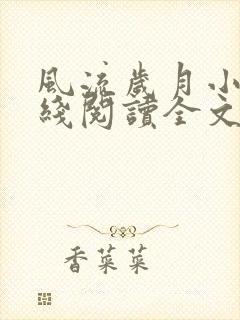 風流歲月小
綫閱讀全文
香菜菜